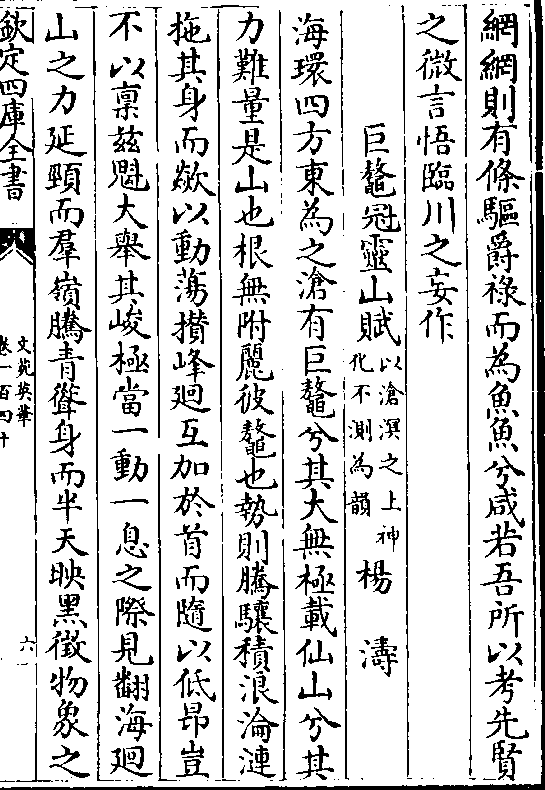 網網則有條驅爵祿而為魚魚兮咸若吾所以考先賢
之微言悟臨川之妄作
巨鼇冠靈山賦以滄溟之上神化不測為韻 楊濤
海環四方東為之滄有巨鼇兮其大無極載仙山兮其
力難量是山也根無附麗彼鼇也勢則騰驤積浪淪漣
拖其身而欻以動蕩攢峰廻互加於首而隨以低昂豈
不以稟茲魁大舉其峻極當一動一息之際見翻海廻
山之力延頸而羣嶺騰青聳身而半天映黑徵物象之
欽定四庫全書
文苑英華
卷一百四十
六